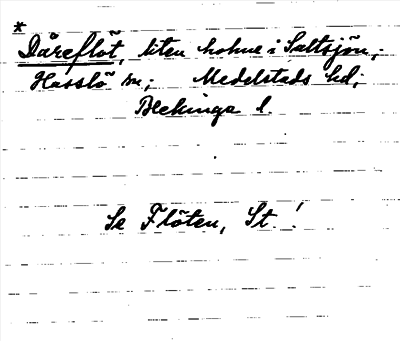 *
Däreflöt, liten holme i Saltsjön;
Hasslö sn; Medelstads hd;
Blekinge l.
Se Flöten, St.!